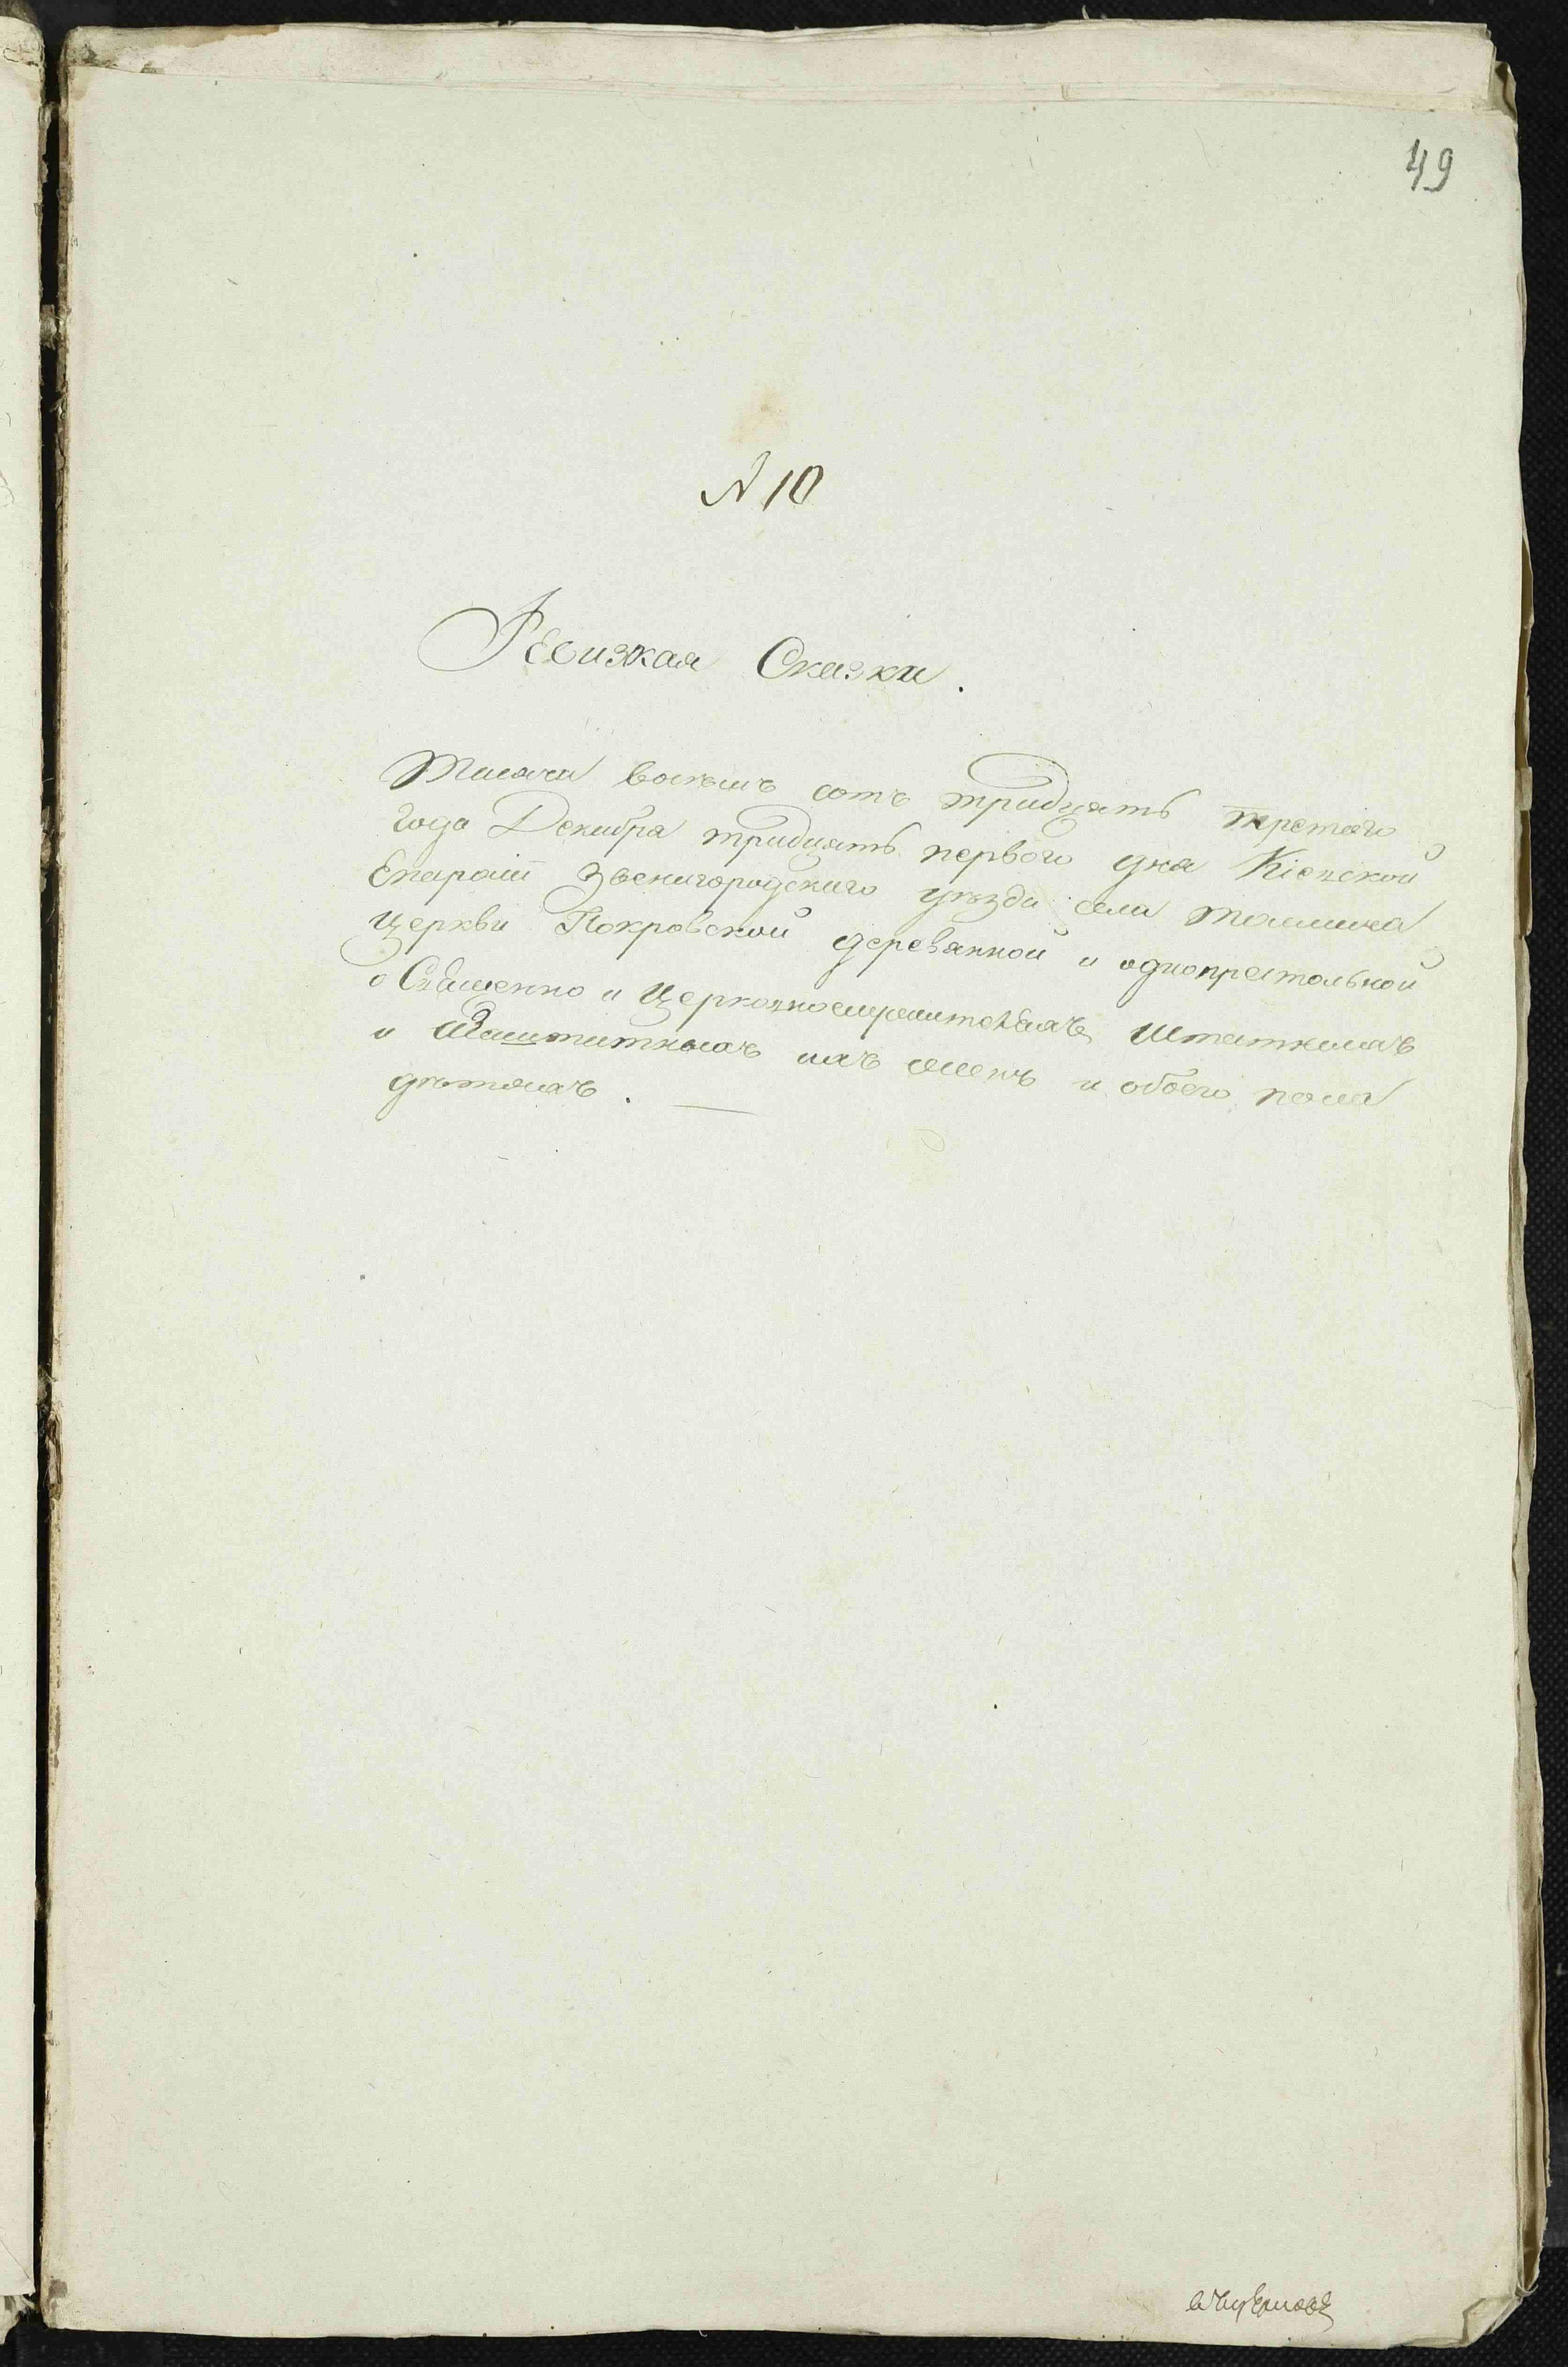 49
№ 10
Ревизкая Сказка.
Тисяча восемъ сотъ тридцять третяго
года Декабря тридцять первого дня Кіевской
Епархіи Звенигородского уѣзда села Толмача
Церкви Покровской деревянной и однопрестольной
о Священно и Церковнослужителяхъ Штатныхъ
и Заштатныхъ ихъ женъ и обоего пола
дѣтяхъ.